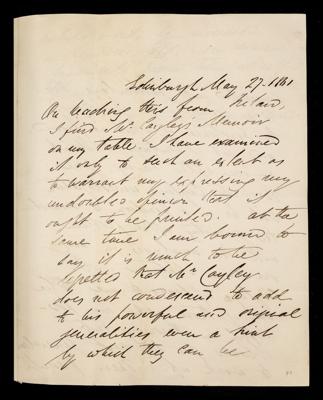 Edinburgh May 27. 1861
On reaching this from Ireland,
I find Mr. Cayley's Memoir
on my table. I have examined
it only to such an extent as
to warrant my expressing my
undoubted opinion that it
ought to be printed. At the
same time I am bound to
say it is much to be
regretted that Mr Cayley
does not condescend to add
to his powerful and original
generalities even a hint
by which they can be